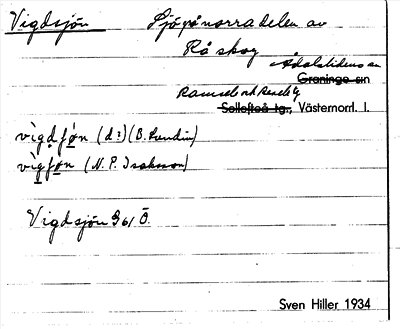 Vigdsjön Sjö på norra delen av
Rå skog Ådalslidens sn
Graninge sn
Ramsele och Resele tg
Sollefteå tg., Västernorrl. l.
vìgdʃøn (d:) (B. Lundin)
vìgʃøn (N. P. Isaksson)
Vigdsjön G 61 Ö.
Sven Hiller 1934